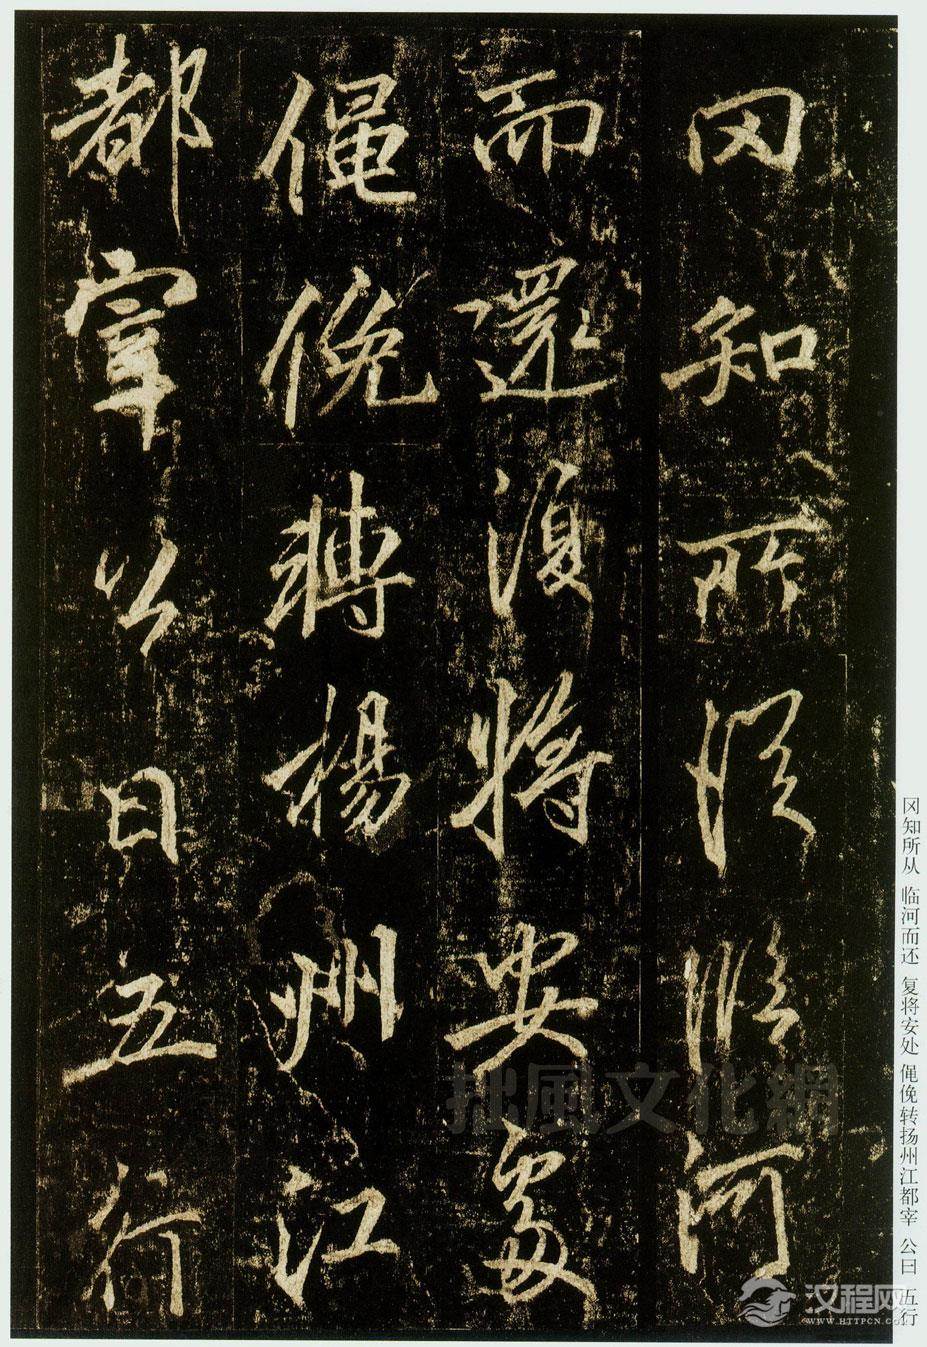 冈知所從臨河
而還復將安處
僶俛轉楊州江
都宰公曰五行
冈知所从 临河而还 复将安处 僶俛转扬州江都宰 公曰 五行
拙風文化網
汉程网
WWW.HTTPCN.COM